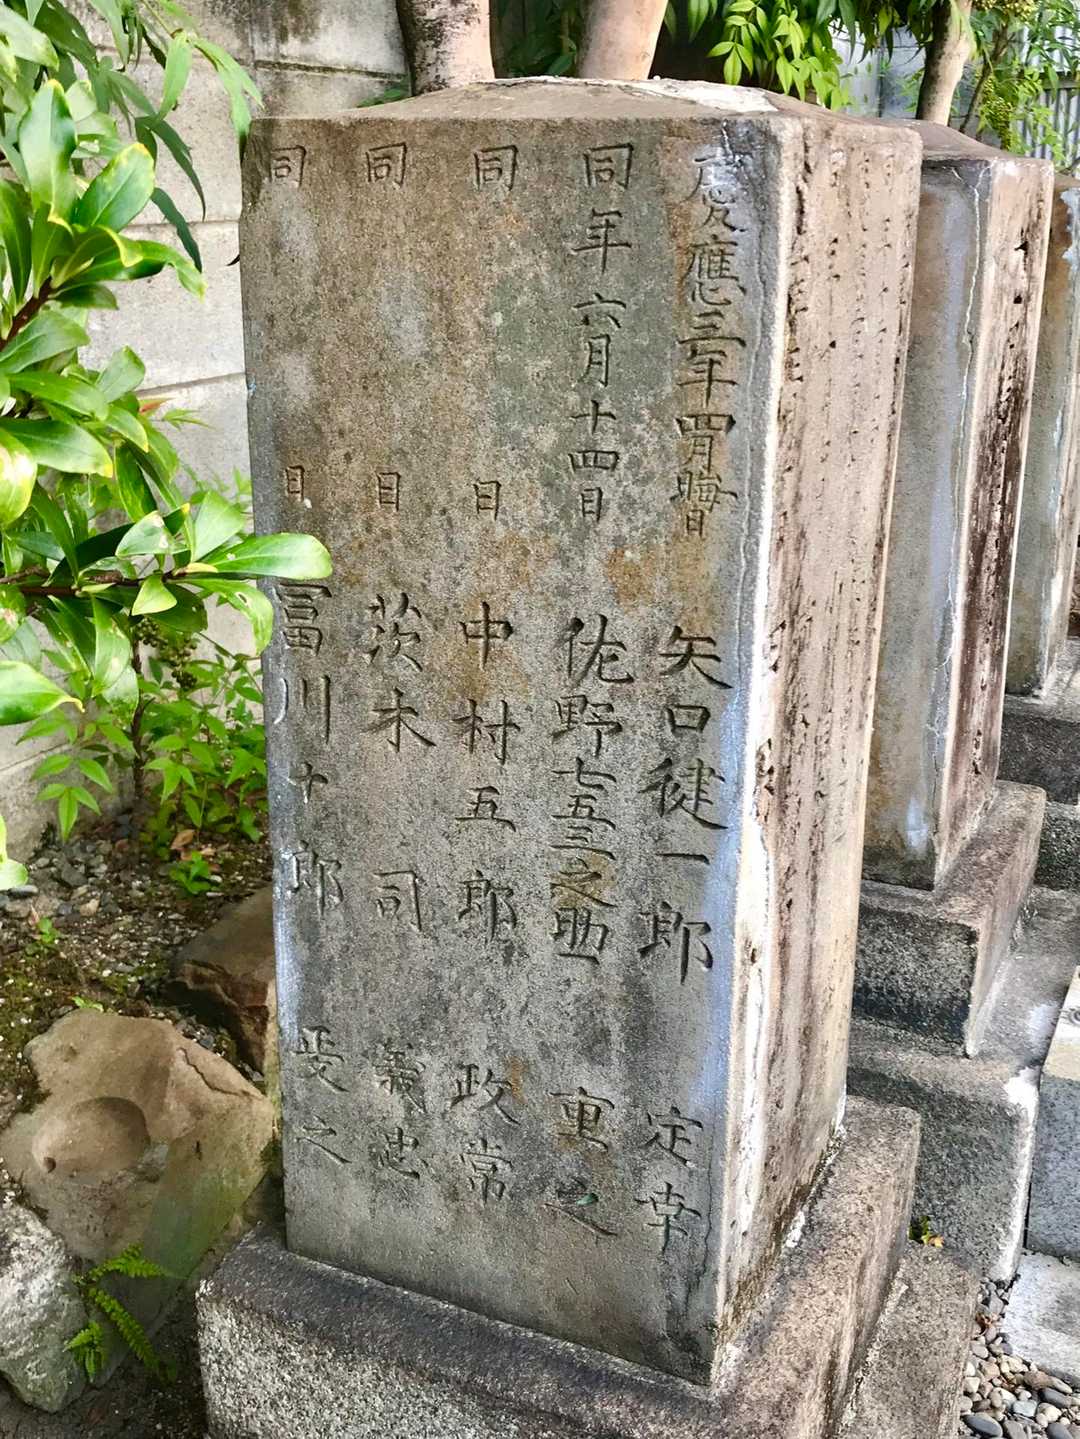 慶應三年四月晦日 矢口健一郎 定幸
同年六月十四日 佐野七五三之助 重之
同 日 中村五郎 政常
同 日 茨木 司 義忠
同 日 冨川十郎 之